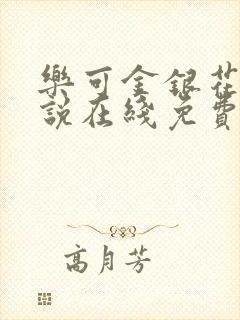 樂可金銀花
說在綫免費
高月芳